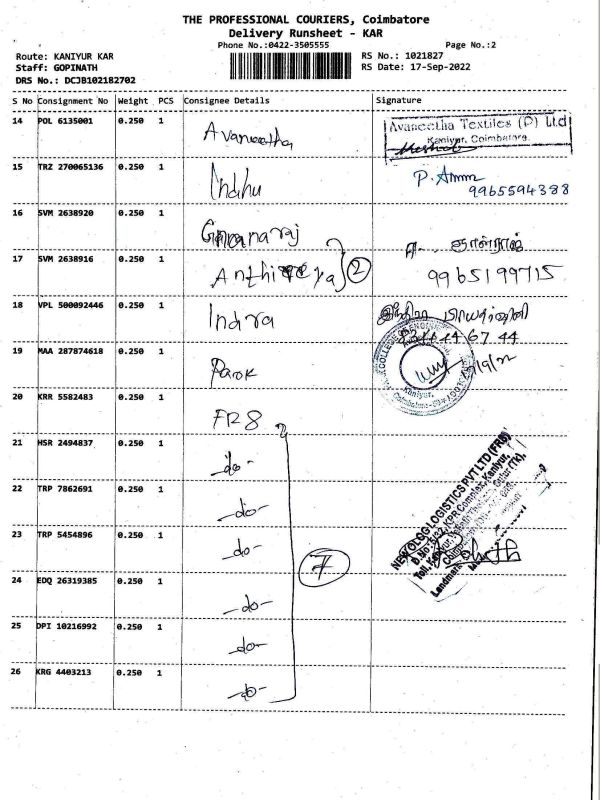 THE PROFESSIONAL COURIERS, Coimbatore
Delivery Runsheet - KAR
Phone No.:0422-3505555 Page No.:2
Route: KANIYUR KAR RS No.: 1021827
Staff: GOPINATH RS Date: 17-Sep-2022
DRS No.: DCJB102182702
S No Consignment No Weight PCS Consignee Details Signature
14 POL 6135001 0.250 1 Avaneetha
Avaneetha Textiles (P) Ltd
Kaniyur, Coimbatore.
15 TRZ 270065136 0.250 1 Indhu P. Amm
9965594388
16 SVM 2638920 0.250 1 Gnanaraj
17 SVM 2638916 0.250 1 2 9965199715
18 VPL 500092446 0.250 1 Indra
19 MAA 287874618 0.250 1 Park
COLLEGE OF ENGINEERING
Kaniyur,
20 KRR 5582483 0.250 1 FR8
21 HSR 2494837 0.250 1 -do-
22 TRP 7862691 0.250 1 -do-
23 TRP 5454896 0.250 1 -do- 7
NEWOLOGG LOGISTICS PVT LTD (FR8)
KPR Complex, Kaniyur,
24 EDQ 26319385 0.250 1 -do-
25 DPI 10216992 0.250 1 -do-
26 KRG 4403213 0.250 1 -do-